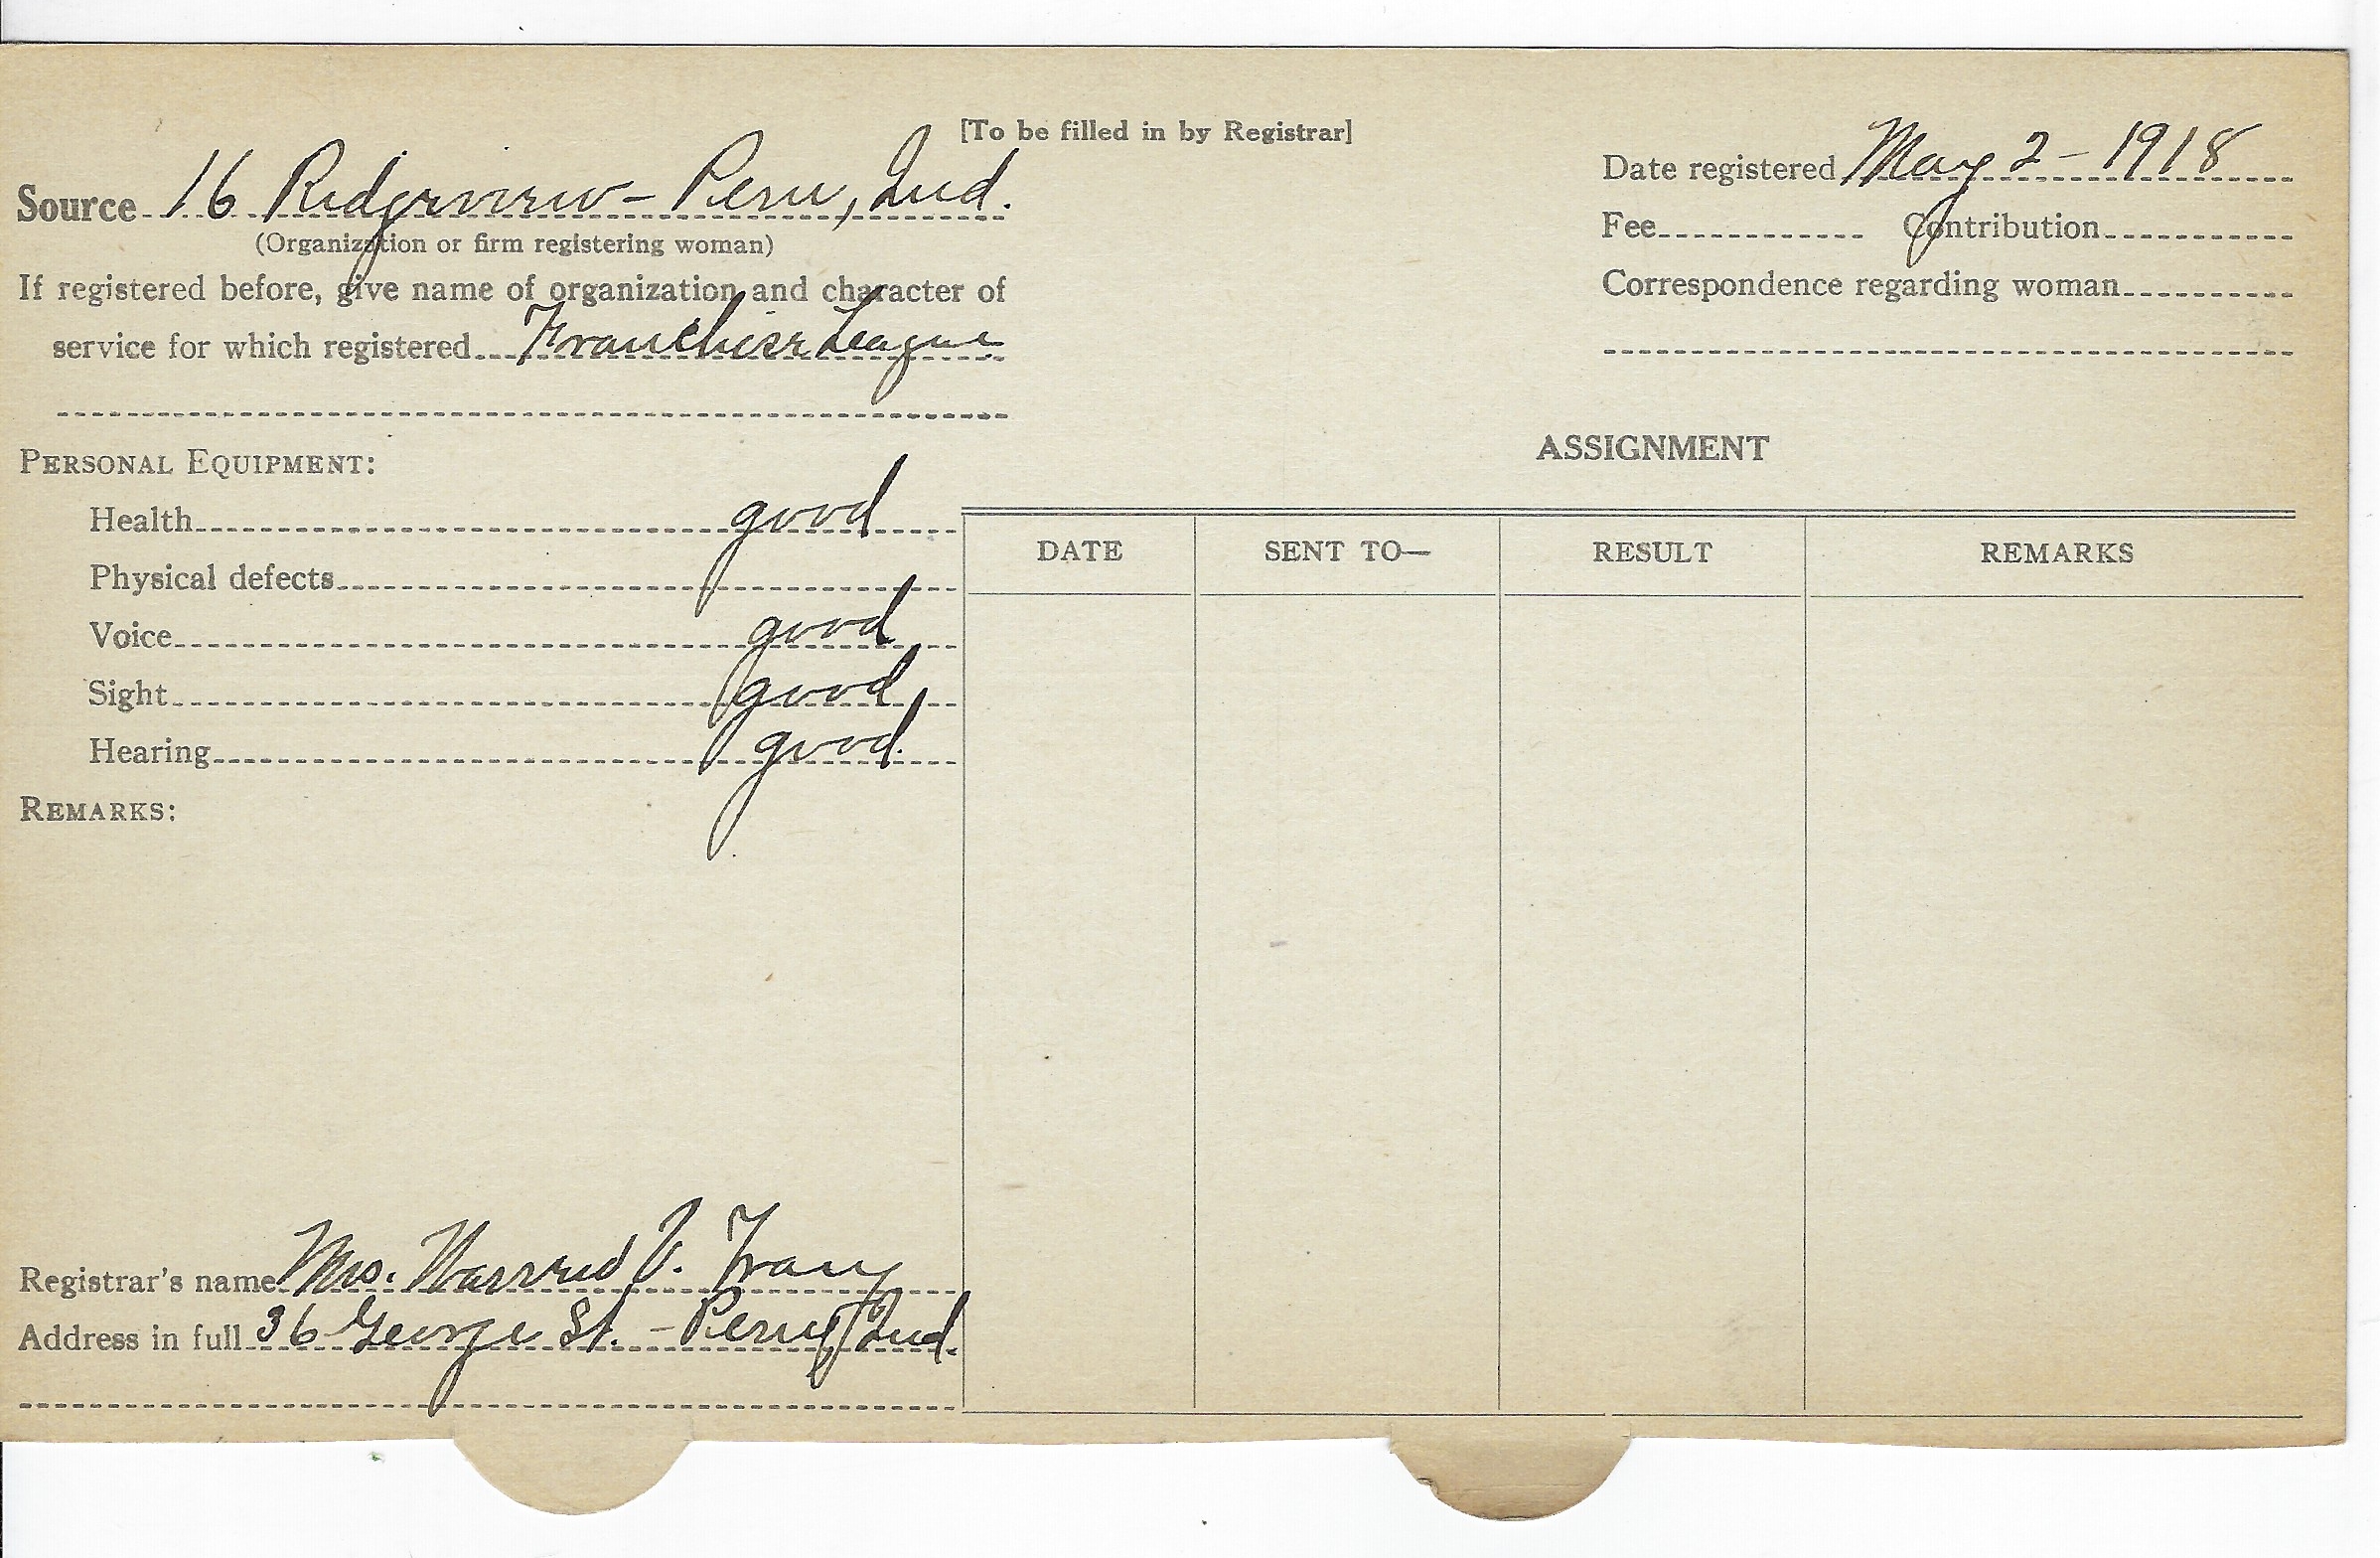 [To be filled in by Registrar]
Source 16 Ridgeview - Peru, Ind.
(Organization or firm registering woman)
If registered before, give name of organization and character of
service for which registered Franchise League
Date registered May 2 - 1918
Fee Contribution
Correspondence regarding woman
PERSONAL EQUIPMENT:
Health good
Physical defects
Voice good
Sight good
Hearing good.
REMARKS:
ASSIGNMENT
DATE SENT TO— RESULT REMARKS
Registrar's name Mrs. V.
Address in full 36 George St. - Peru, Ind.